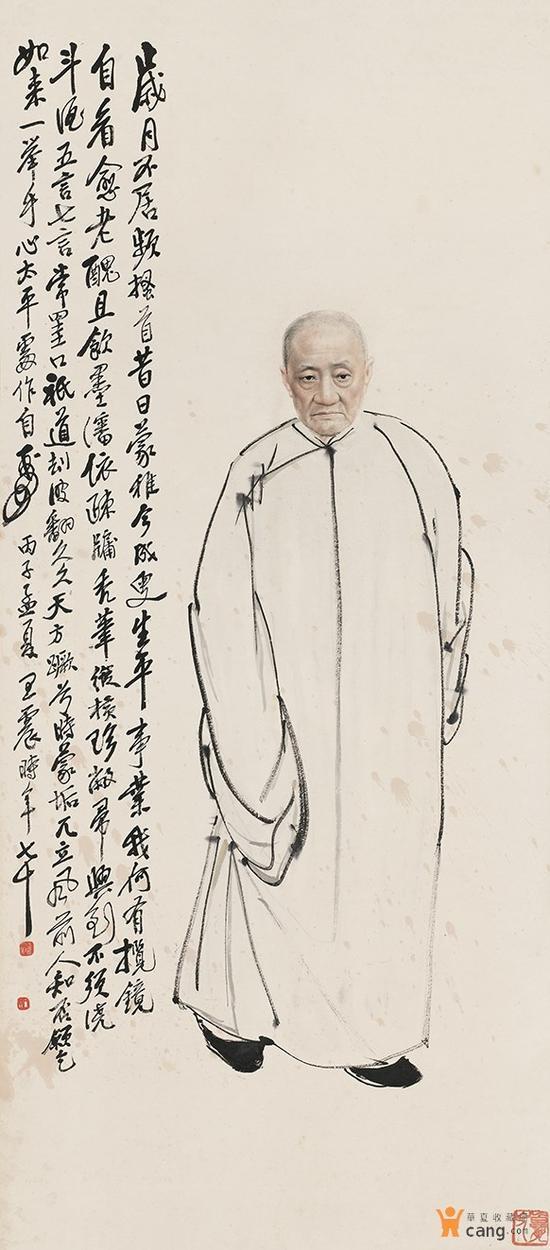 歲月不居頻搔首昔日蒙稚今成叟生平事業我何有攬鏡
自看愈老醜且飲墨瀋依疎牖禿筆縱橫珍敝帚興到不須澆
斗酒五言七言常罣口祇道刦波翻久久天方蹶兮時蒙垢兀立風前人知否願乞
如來一舉手心太平處作自壽 丙子孟夏 王震時年七十
華夏收藏
cang.com